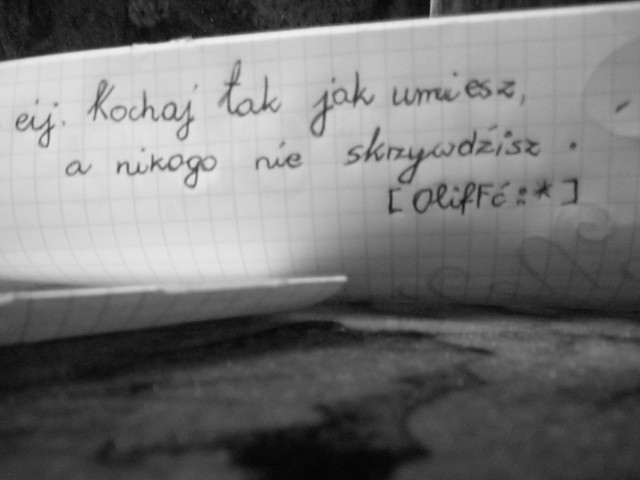 eij. Kochaj tak jak umiesz,
a nikogo nie skrzywdzisz.
[OlifFć:*]